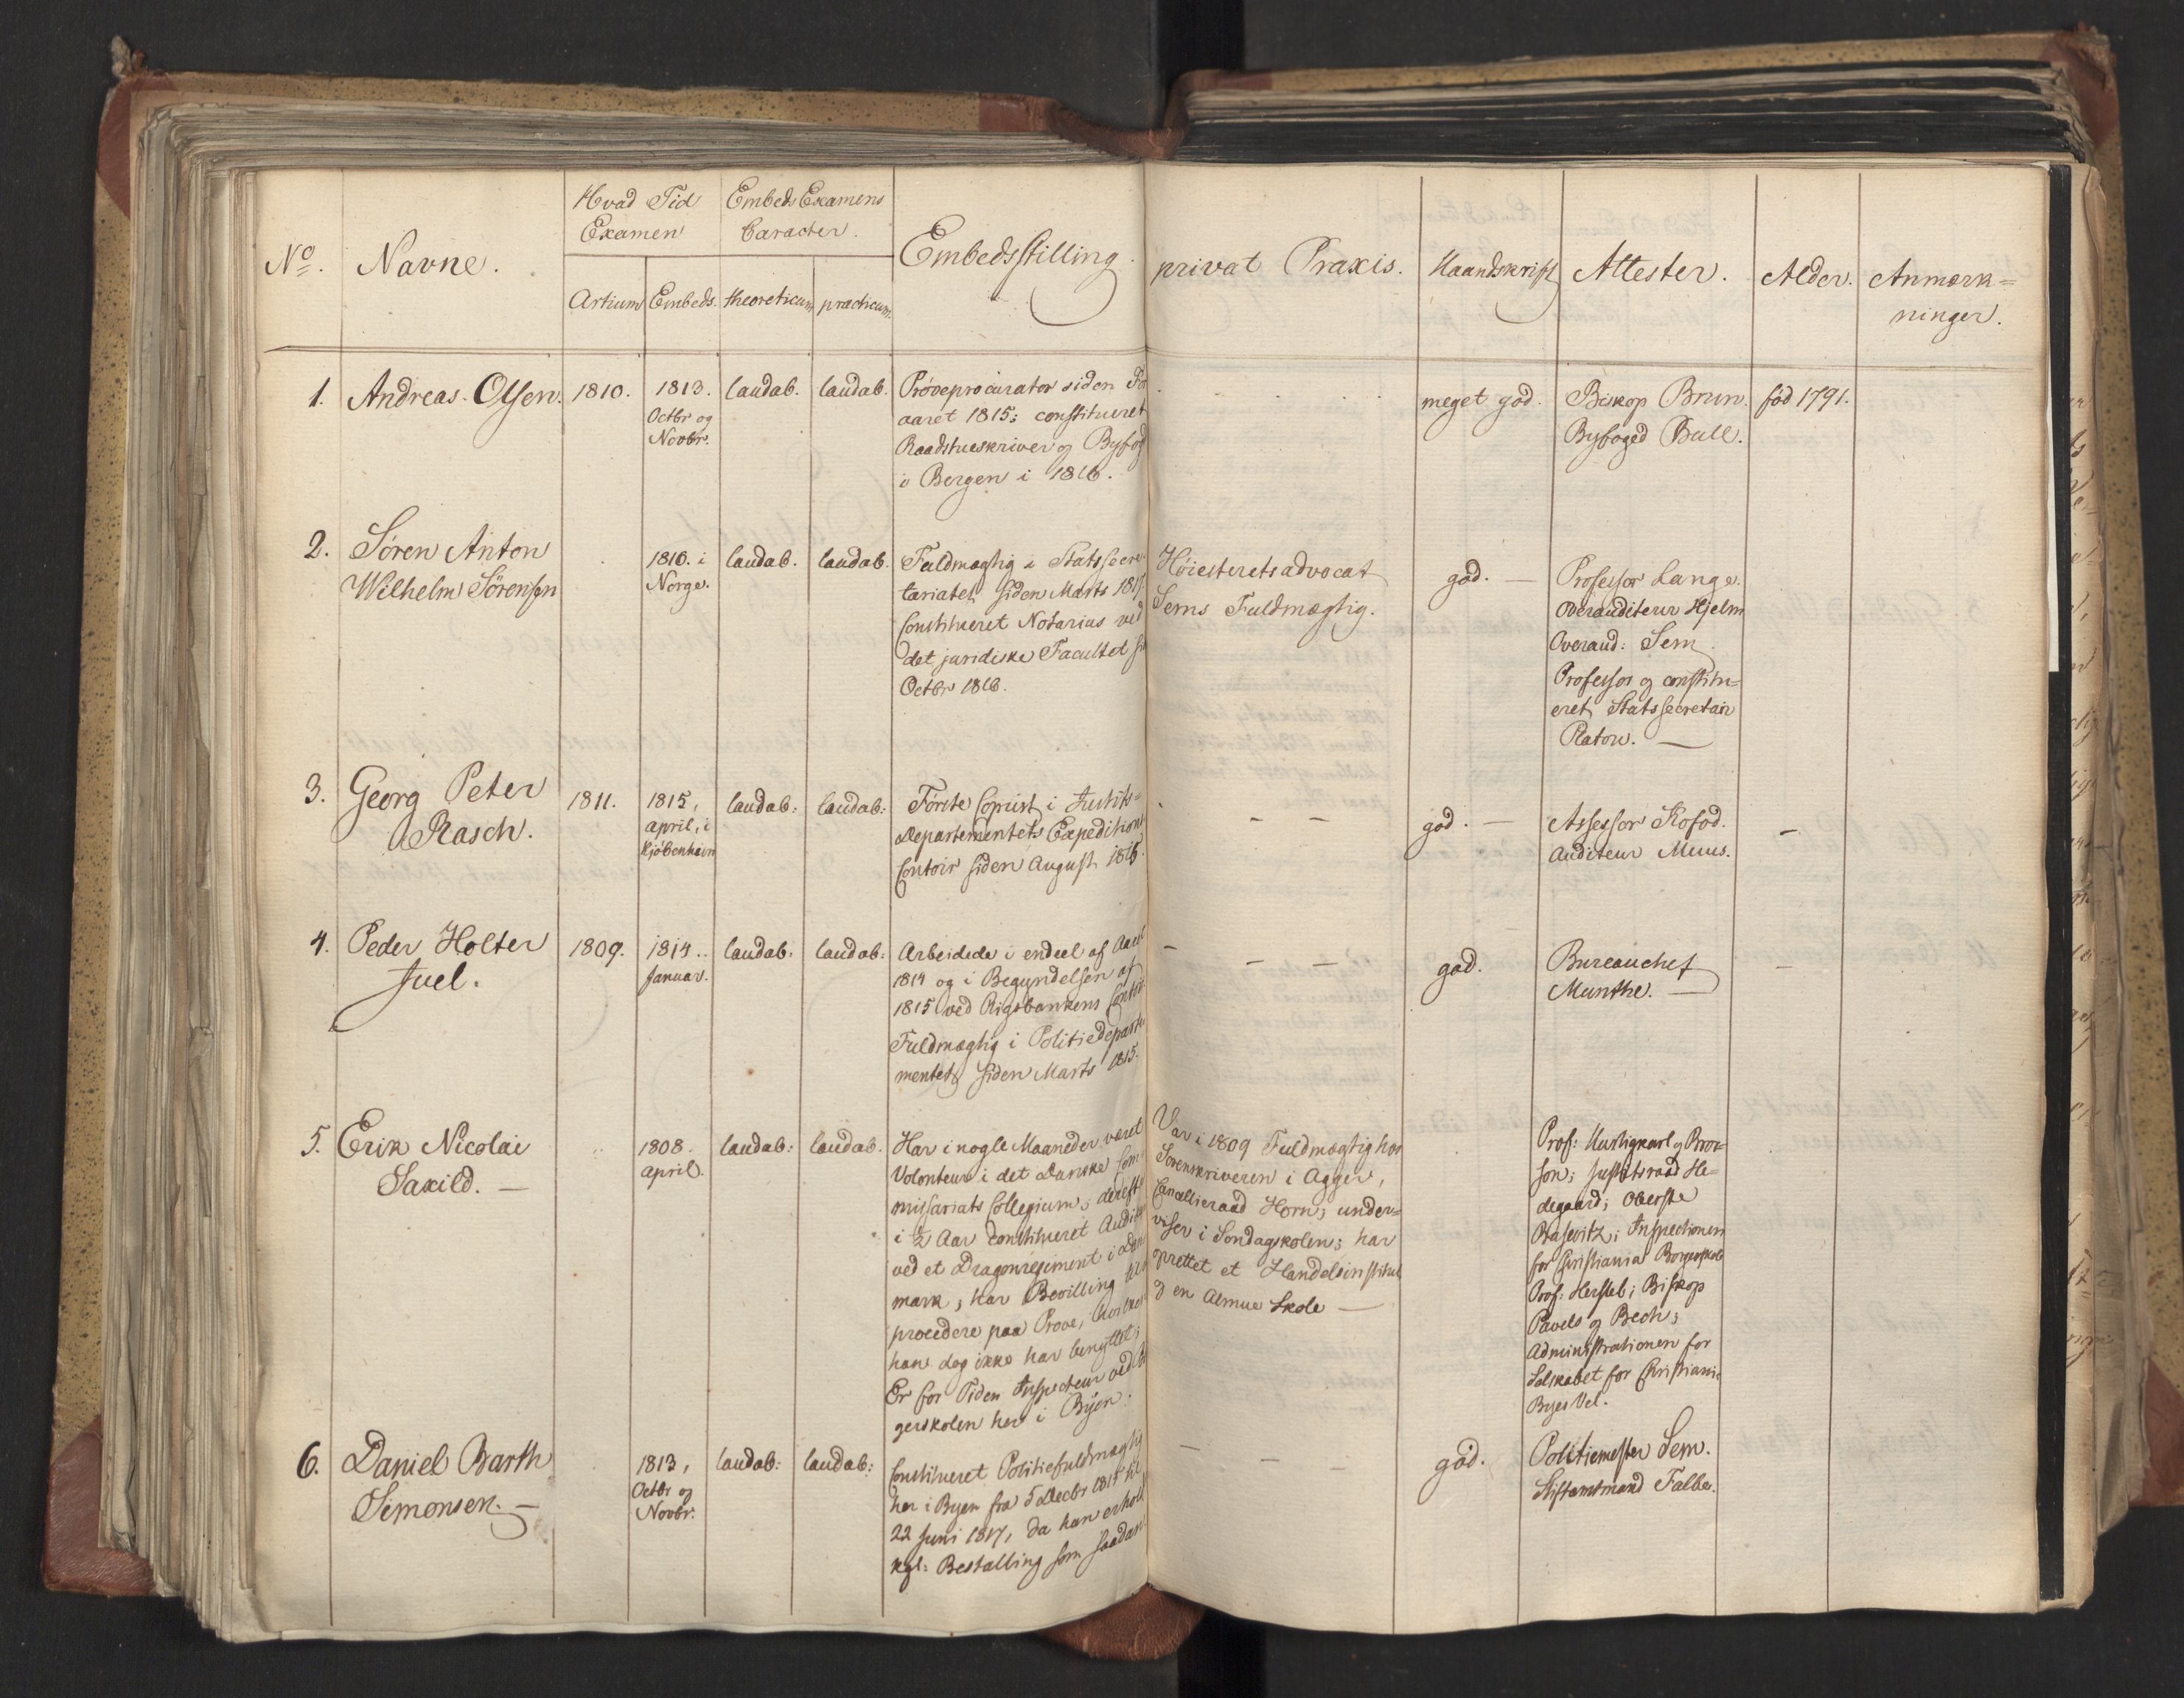 No. Navne.
Hvad Tid Examen
Artium Embeds.
Embeds Examens Caracter.
theoreticum practicum.
Embedsstilling.
privat Praxis.
Haandskrift
Attester.
Alder.
Anmærk=
ninger.
1. Andreas Olsen.
1810.
1813.
Octbr og
Novbr.
laudab. laudab.
Prøveprocurator siden
aaret 1815; constitueret
Raadstueskriver og
i Bergen i 1816.
meget god.
Biskop Brun.
Byfoged Bull.
fød 1791.
2. Søren Anton
Wilhelm Sørensen
1810. i
Norge.
laudab. laudab.
Fuldmægtig i Statssecre-
tariatet siden Marts 1817.
Constitueret Notarius ved
det juridiske Facultet
Octbr 1816.
Høiesteretsadvocat
Sems Fuldmægtig.
god. —
Professor Lange.
Overauditeur Hjelm
Overaud: Sem
Professor og constitu=
eret Statssecretair
Platou. —
3. Georg Peter
Rasch.
1811.
1815,
april, i
Kjøbenhavn
laudab: laudab:
Første Copiist i Justits=
Departementets Expeditions
Contoir siden August 1815.
- -
god. —
Assessor Kofod.
Auditeur Muus.
-
4. Peder Holter
Juel.
1809.
1814..
Januar.
laudab: laudab:
Arbeidede i endeel af Aaret
1814 og i Begyndelsen af
1815 ved Rigsbankens
Fuldmægtig i Politiedeparte
mentet siden Marts 1815.
- - -
god.
Bureauchef
Munthe. —
-
5. Erik Nicolai
Saxild. —
1808.
april.
laudab: laudab.
Har i nogle Maaneder været
Volonteur i det Danske Com
missariats Collegium; dereft
i ½ Aar constitueret Auditeur
ved et Dragonregiment i
mark; har Bevilling
procedere paa Prøve, hvilken
han dog ikke har benyttet;
Er for Tiden Inspecteur ved
gerskolen her i Byen.
Var i 1809 Fuldmægtig hos
Sorenskriveren i Agger,
Cancellieraad Horn; under=
viser i Søndagskolen; har
oprettet et Handelsinstitut
og en Almue Skole —
Prof: Hurtigkarl og Bror=
son; Justitsraad He=
degaard; Oberste
Basevitz; Inspectionen
for Christiania Borgerskole
Prof: Hersleb; Biskop
Pavels og Bech;
Administrationen for
Selskabet for Christiania
Byes Vel.
6. Daniel Barth
Simonsen. —
1813,
Octbr og
Novbr.
laudab: laudab:
Constitueret Politiefuldmægtig
her i Byen fra 5 Decbr 1815 til
22 Juni 1817, da han erholdt
kgl: Bestalling som saadan
- - -
god.
Politiemester Sem.
Stiftamtmand Falbe.